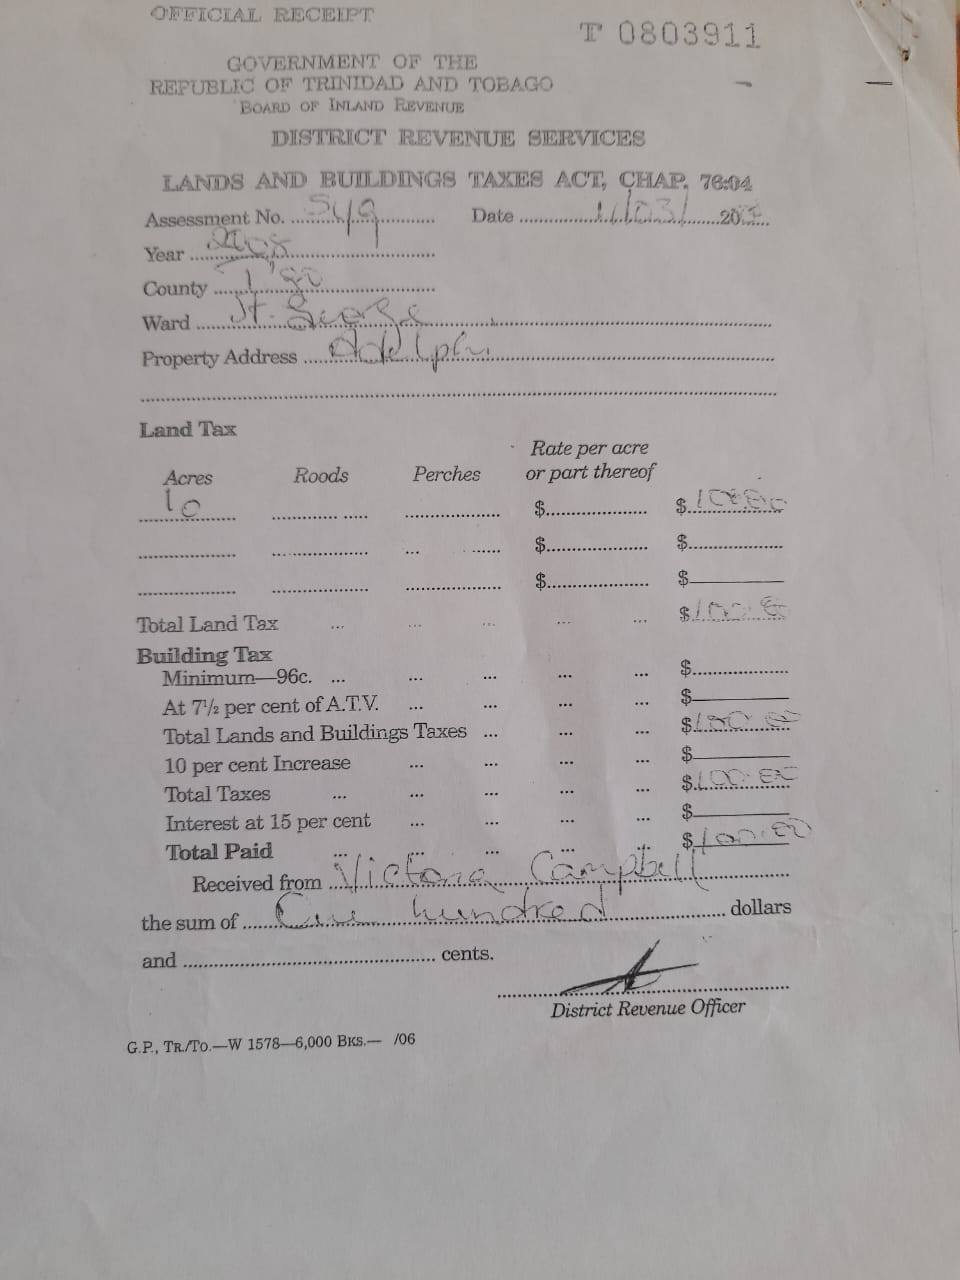 OFFICIAL RECEIPT
T 0803911
GOVERNMENT OF THE
REPUBLIC OF TRINIDAD AND TOBAGO
BOARD OF INLAND REVENUE
DISTRICT REVENUE SERVICES
LANDS AND BUILDINGS TAXES ACT, CHAP. 76:04
Assessment No. .................... Date .................... 20
Year 2008
County T'go
Ward St. George
Property Address Adelphi
Land Tax
Acres Roods Perches Rate per acre or part thereof
10 $ $100.00
$ $
$ $
Total Land Tax ... ... ... ... ... $100.00
Building Tax
Minimum—96c. ... ... ... ... ... $
At 7½ per cent of A.T.V. ... ... ... ... $
Total Lands and Buildings Taxes ... ... ... $100.00
10 per cent Increase ... ... ... ... $
Total Taxes ... ... ... ... ... $100.00
Interest at 15 per cent ... ... ... ... $
Total Paid ... ... ... ... ... $100.00
Received from Victoria Campbell
the sum of One hundred dollars
and .................... cents.
District Revenue Officer
G.P., TR./TO.—W 1578—6,000 BKS.— /06